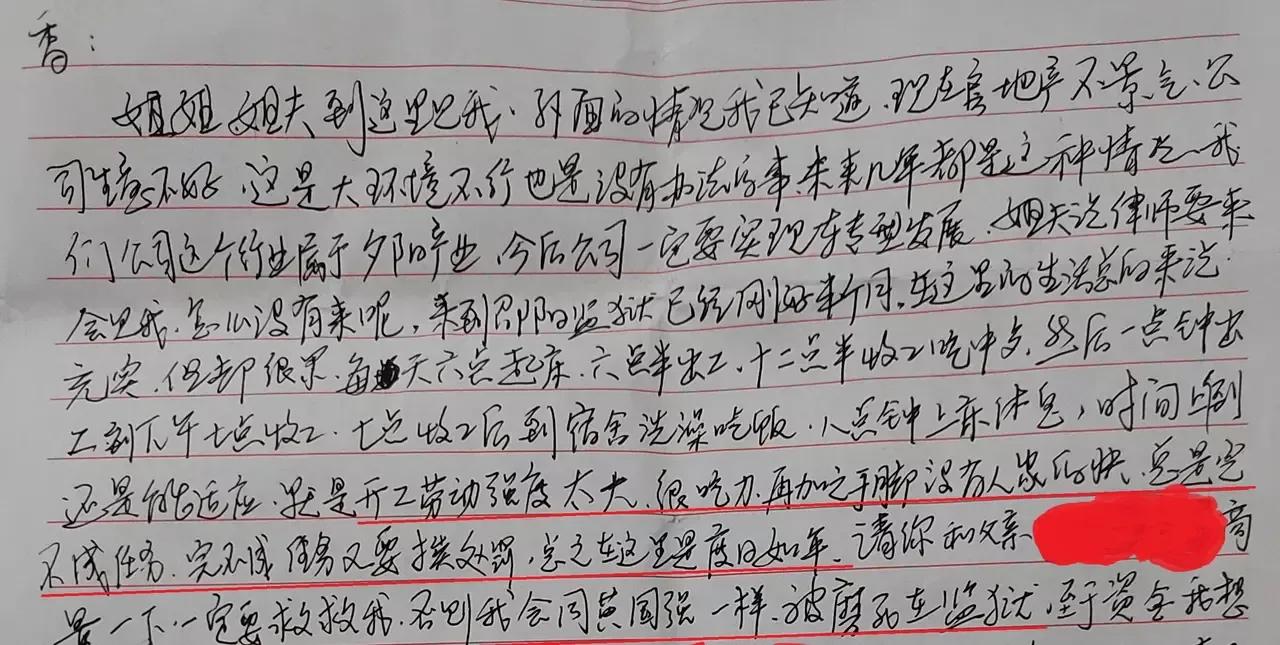 香:
姐姐姐夫到这里见我、外面的情况我已知道、现在房地产不景气、公
司生意不好、这是大环境不行也是没有办法的事、未来几年都是这种情况、我
们公司这个行业属于夕阳产业、今后公司一定要实现专型发展、姐夫说律师要来
会见我、怎么没有来呢,来到邵阳监狱已经刚好半个月,在这里的生活总的来说
充实、但却很累、每天六点起床、六点半出工、十二点半收工吃中文、然后一点钟出
工到下午七点收工、七点收工后到宿舍洗澡吃饭、八点钟上床休息,时间上倒
还是能适应、就是开工劳动强度太大、很吃力、再加之手脚没有人家的快、总是完
不成任务、完不成任务又要挨处罚,总之在这里是度日如年、请你和父亲 商
量一下、一定要救救我、否则我会同黄国强一样、被磨死在监狱、至于资金我想